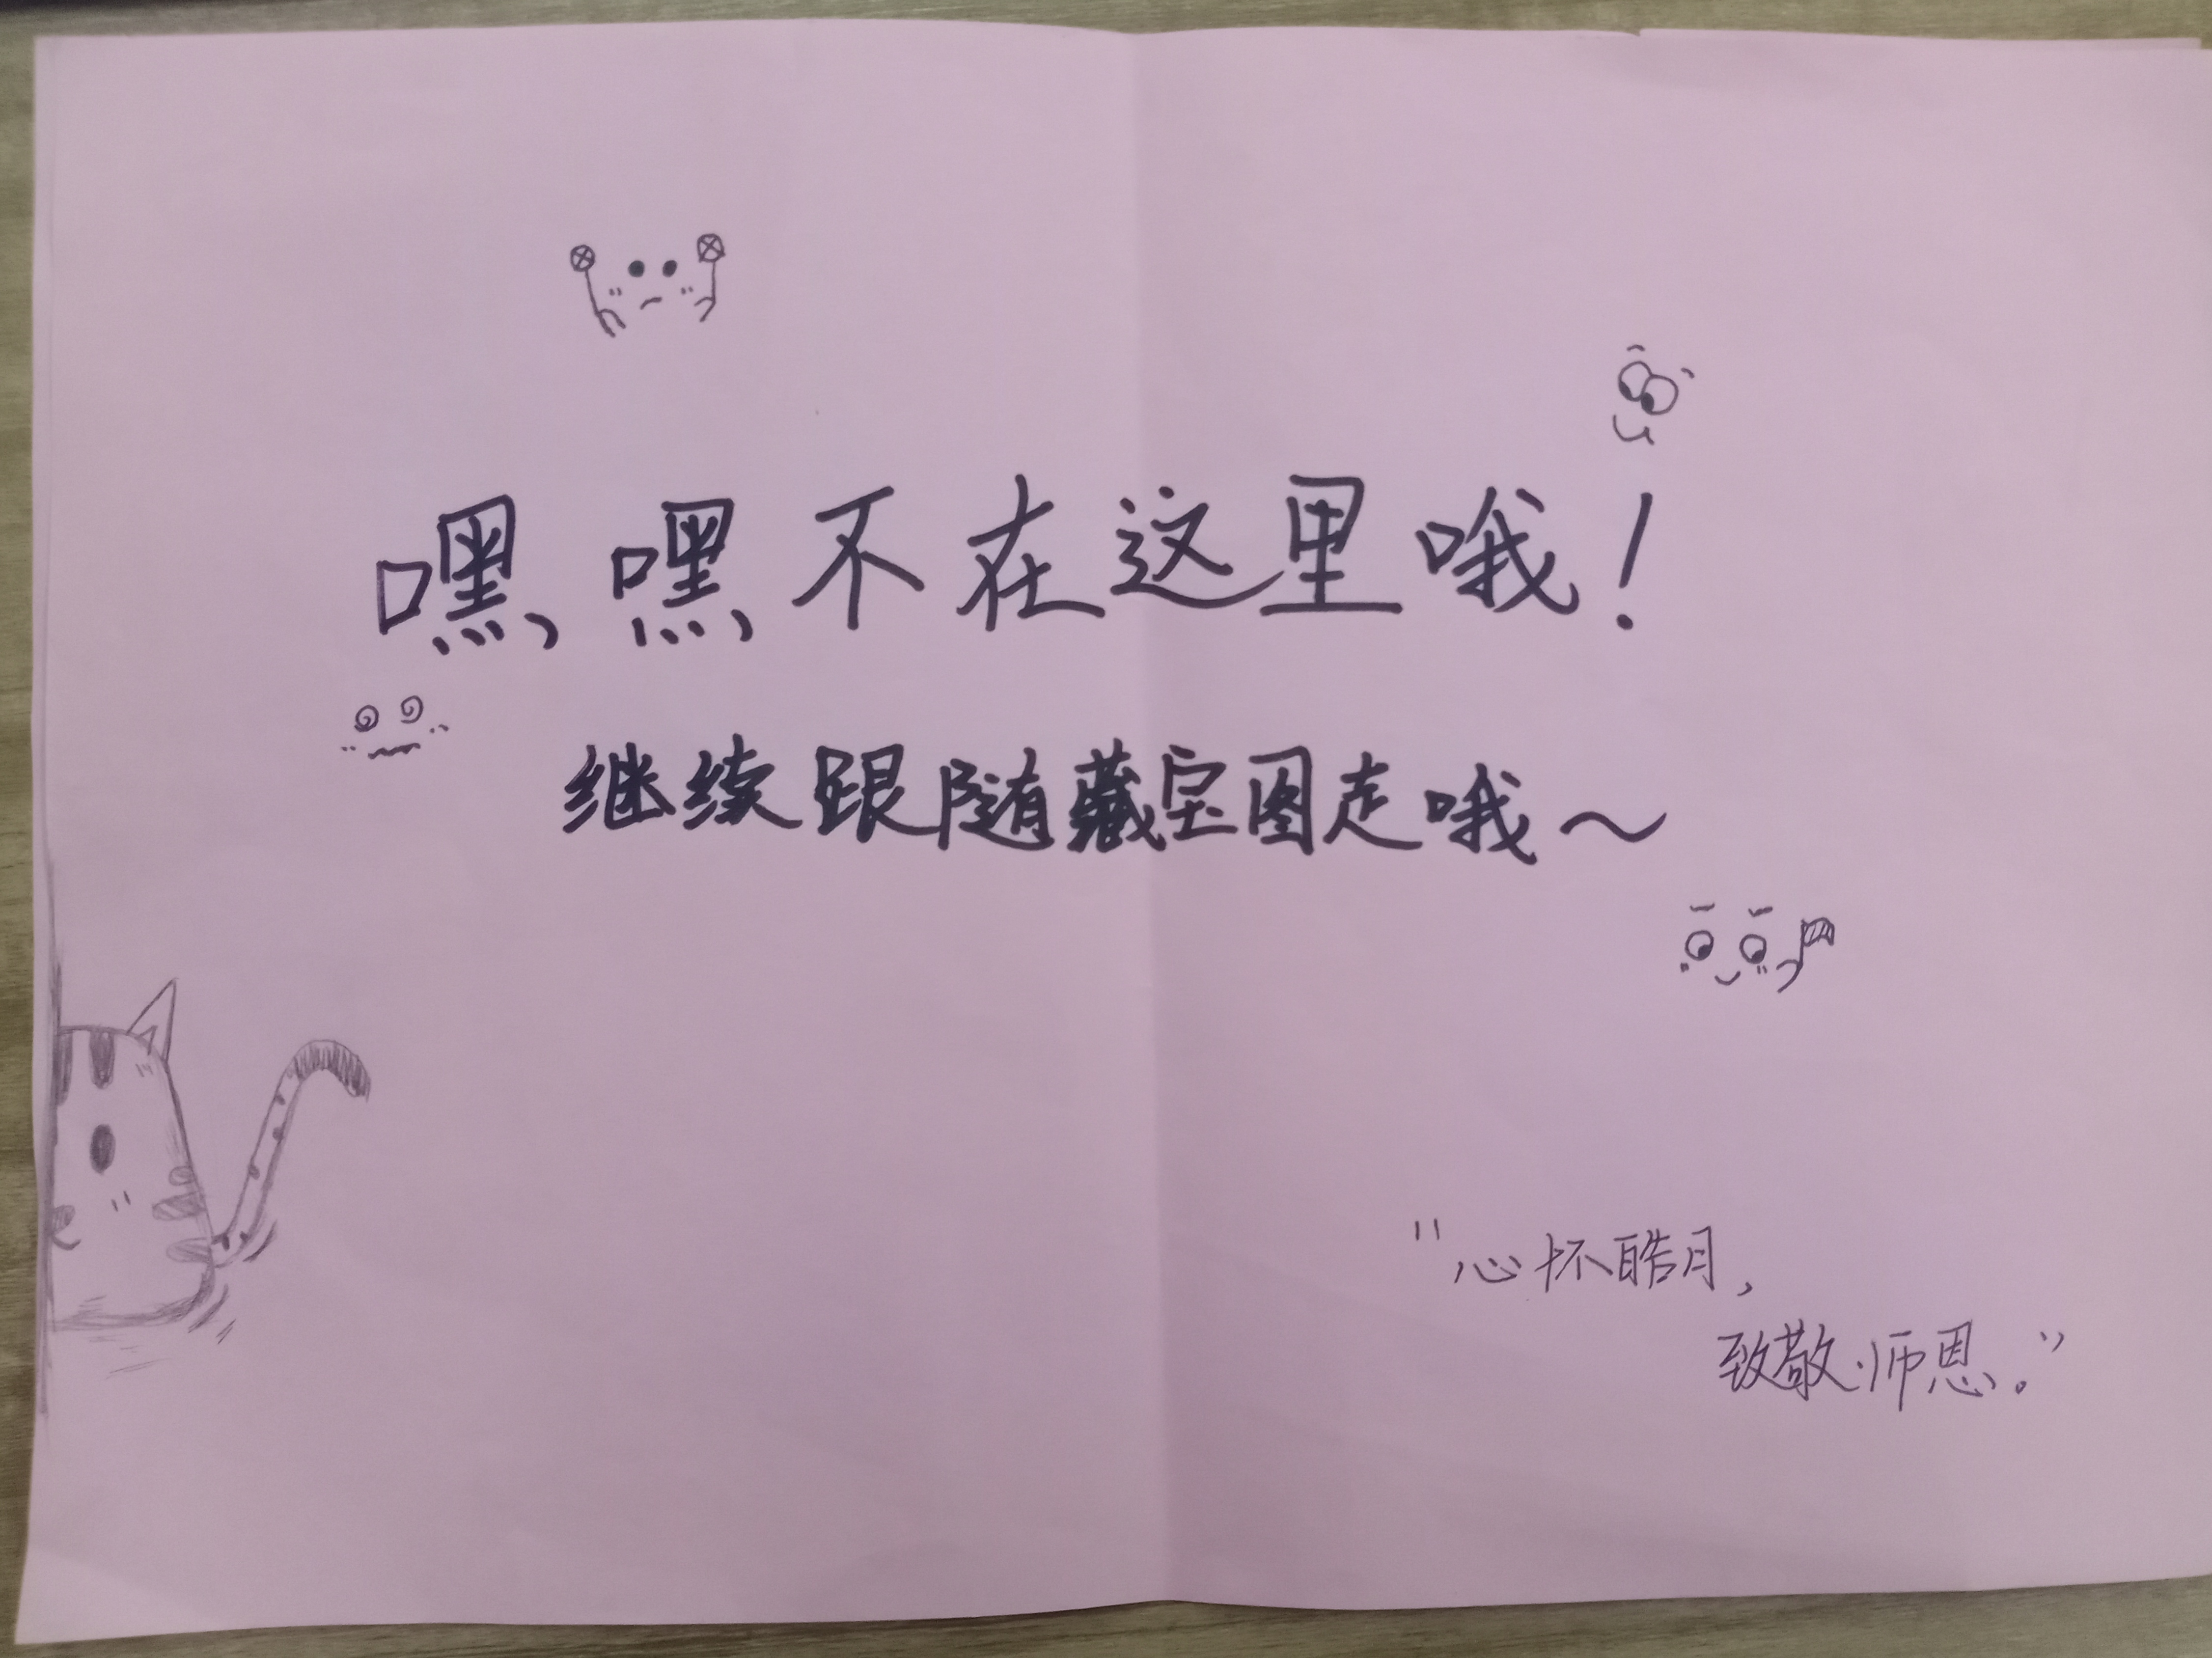 嘿,嘿,不在这里哦!
继续跟随藏宝图走哦～
"心怀皓月,
致敬师恩。"